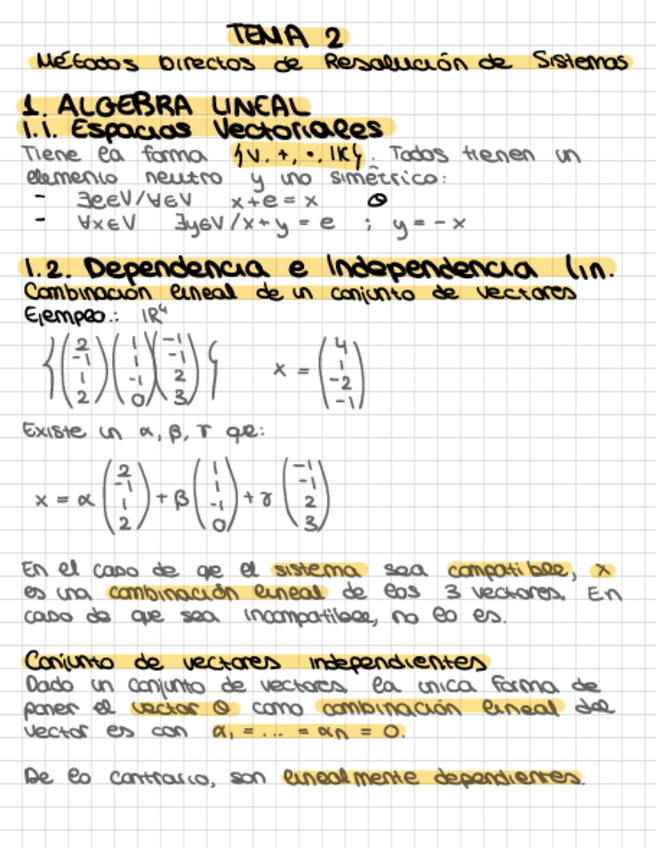 TEMA 2
Métodos Directos de Resolución de Sistemas
1. ALGEBRA LINEAL
1.1. Espacios Vectoriales
Tiene la forma {V, +, ·, IK}. Todos tienen un
elemento neutro y uno simétrico:
- ∃e∈V/∀∈V x+e = x 0
- ∀x∈V ∃y∈V/x+y = e ; y = -x
1.2. Dependencia e Independencia lin.
Combinación lineal de un conjunto de vectores
Ejemplo.: IR⁴
{(2 -1 1 2) (1 1 -1 0) (-1 -1 2 3)} x = (4 1 -2 -1)
Existe un α, β, γ qe:
x = α (2 -1 1 2) + β (1 1 -1 0) + γ (-1 -1 2 3)
En el caso de qe el sistema sea compatible, x
es una combinación lineal de los 3 vectores. En
caso de que sea incompatible, no lo es.
Conjunto de vectores independientes
Dado un conjunto de vectores la única forma de
poner el vector 0 como combinación lineal del
vector es con α₁ = ... = αn = 0.
De lo contrario, son linealmente dependientes.